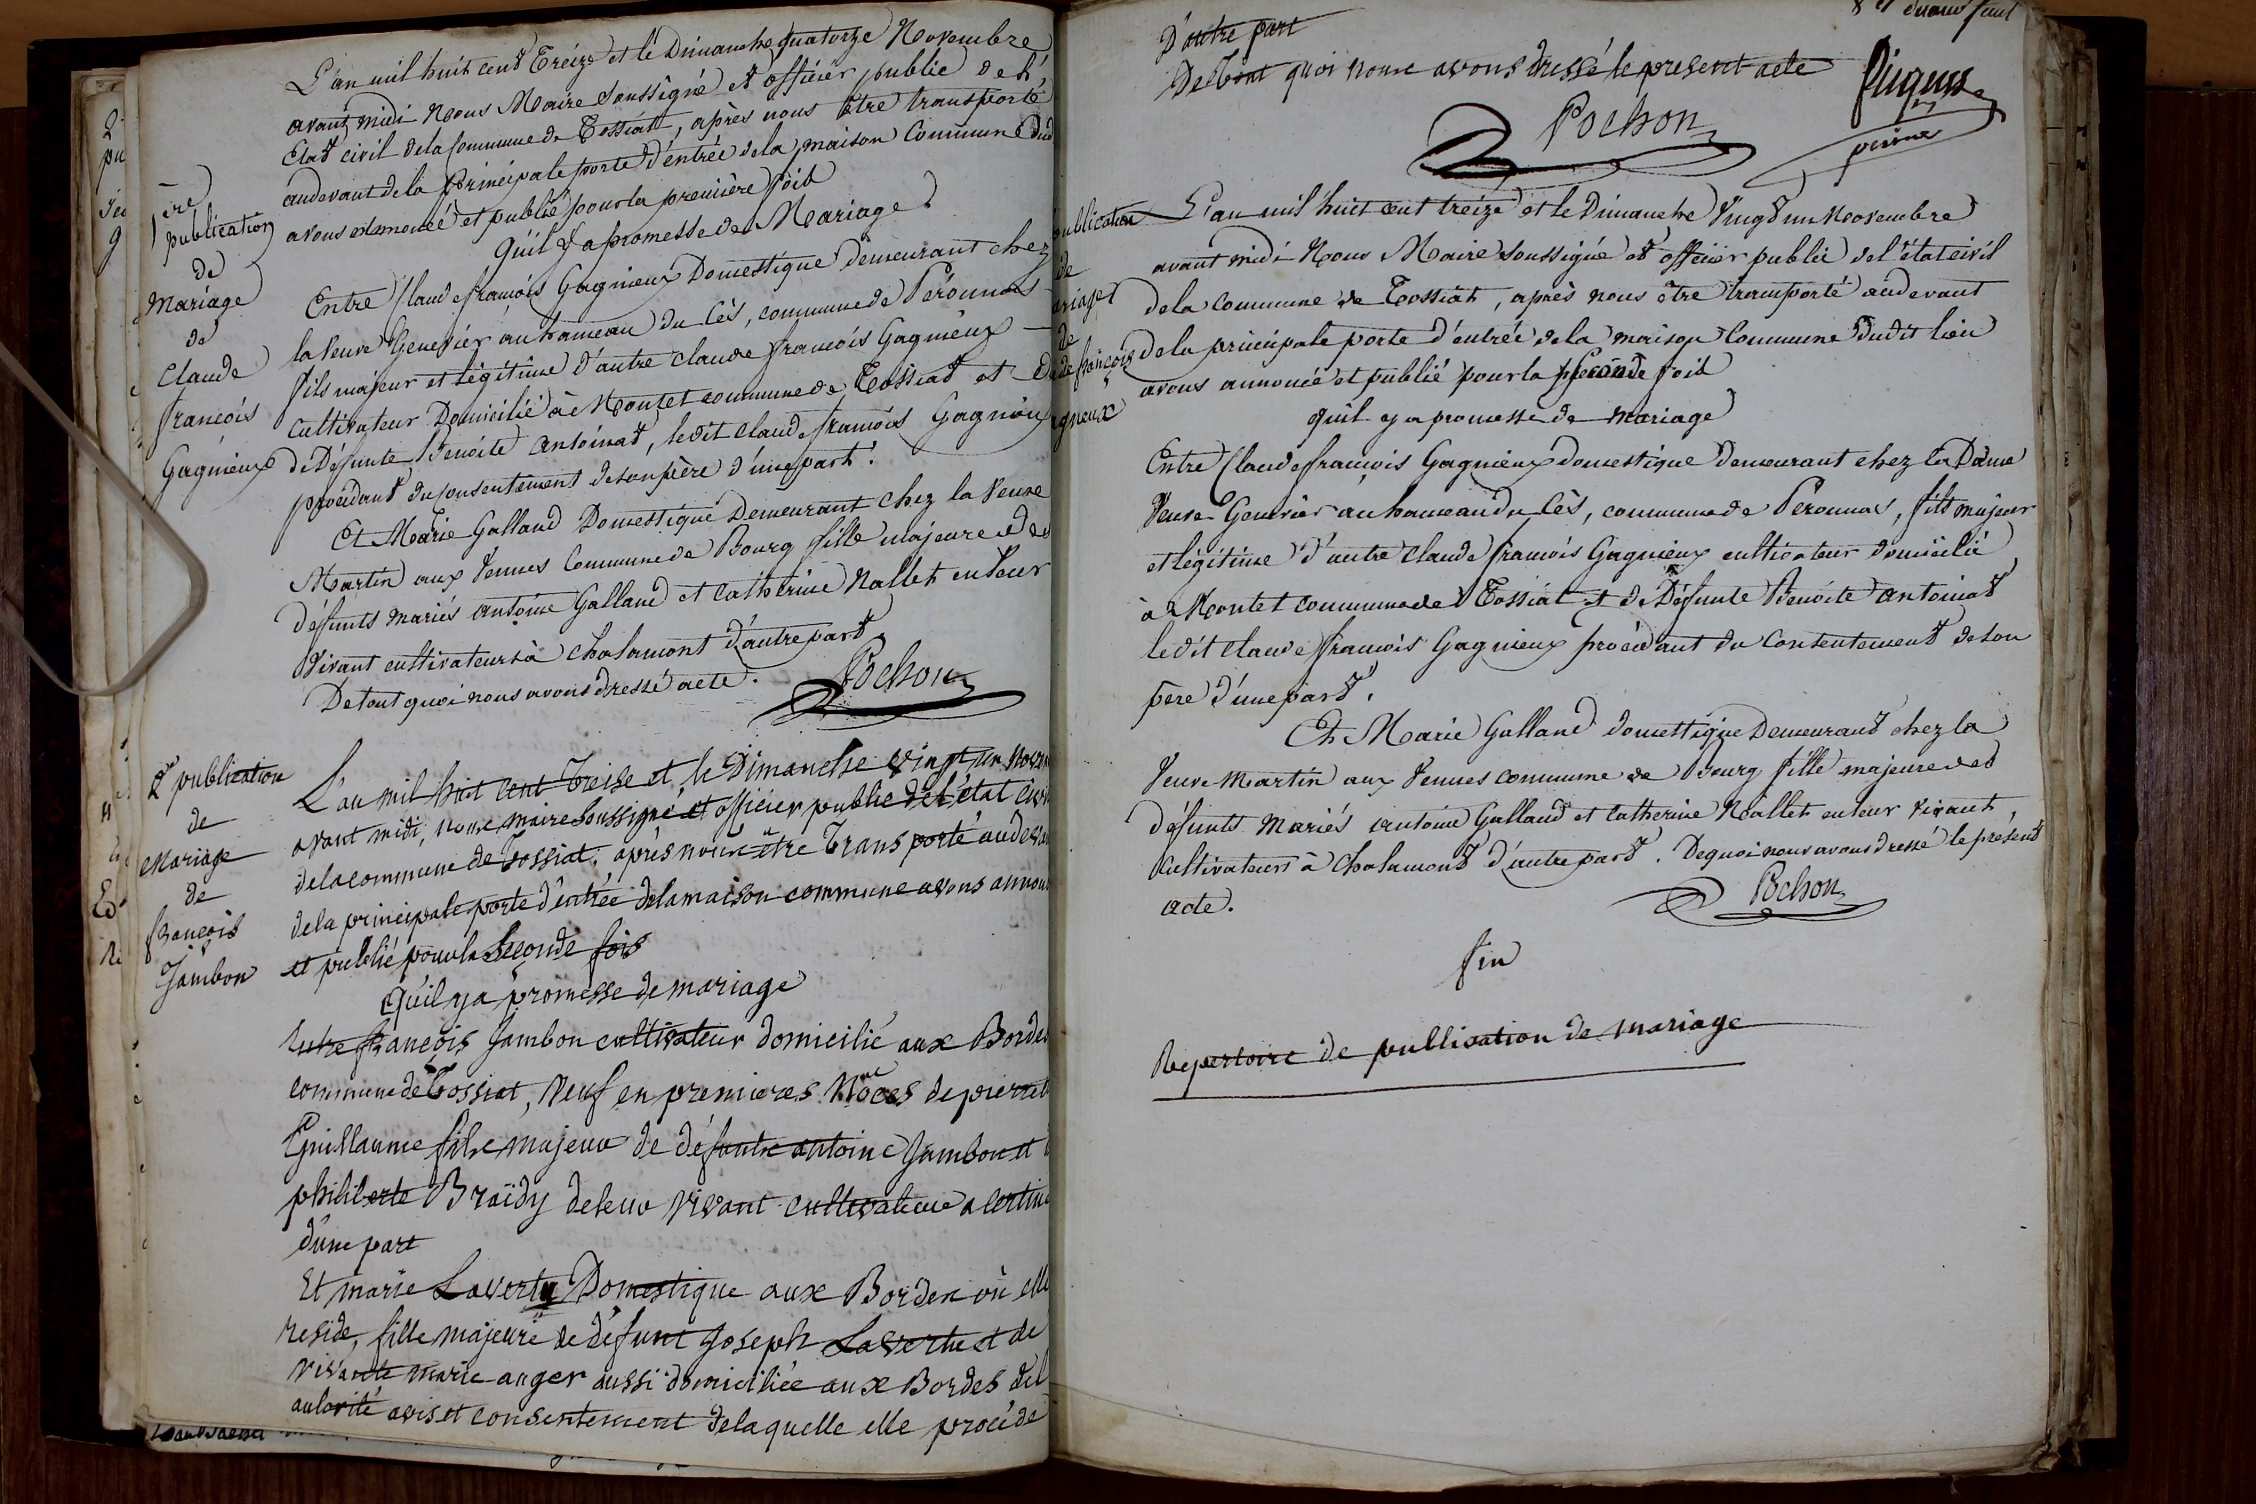 1ère
publication
de
Mariage
de
Claude
françois
Gagnieux
L'an mil huit cent Treize et le Dimanche quatorze Novembre
avant midi Nous Maire soussigné et officier public de l'
Etat civil de la Commune de Tossiat, après nous être transporté
audevant de la Principale porte d'entrée de la maison Commune dud
avons annoncé et publié pour la première foid
Qu'il y a promesse de Mariage
Entre Claude françois Gagnieux Domestique demeurant chez
la Veuve Genevier au hameau du Cès, commune de Péronnas
fils majeur et légitime d'autre Claude françois Gagnieux
Cultivateur Domicilié à Montet commune de Tossiat et
de Défunte Benoite Antoinat, ledit Claude françois Gagnieux
procédant du consentement de son père d'une part.
Et Marie Galland Domestique Demeurant chez la Veuve
Martin aux Vennes Commune de Bourg fille majeure des
défunts mariés antoine Galland et Catherine Nallet en leur
Vivant cultivateurs à Chalamont d'autre part
De tout quoi nous avons dressé acte.
Pochon
2e publication
de
Mariage
de
françois
Jambon
L'an mil huit cent Treise et le Dimanche vingt un Novem
avant midi, nous maire soussigné et officier public de l'état civil
de la commune de Tossiat, après nous être Transporté au devan
de la principale porte d'entrée de la maison commune avons annon
et publié pour la seconde fois
Qu'il y a promesse de mariage
Entre françois Jambon cultivateur domicilié aux Bordes
commune de Tossiat, Veuf en premieres Noces de pierrette
Guillaume fils majeur de défunts antoine Jambon et
philiberte Braïdy de leur vivant cultivateurs a Certine
d'une part
Et marie Lavertu Domestique aux Bordes où elle
reside, fille majeure de défunt Joseph Lavertu et de
vivante marie anger aussi domiciliée aux Bordes de l
autorité avis et consentement de laquelle elle procéde
D'autre part
De tout quoi nous avons dressé le present acte
Pochon
publication
de
ariage
de
françois
agnieux
L'an mil huit cent treize et le Dimanche Vingt un Novembre
avant midi Nous Maire soussigné et officier public de l'état civil
de la commune de Tossiat, après nous être transporté audevant
de la principale porte d'entrée de la maison Commune dudit lieu
avons annoncé et publié pour la seconde foid
qu'il y a promesse de mariage
Entre Claude françois Gagnieux domestique demeurant chez la Dame
Veuve Genevier au hameau du Cès, commune de Péronnas, fils majeur
et légitime d'autre Claude françois Gagnieux cultivateur domicilié
à Montet commune de Tossiat et de Défunte Benoite Antoinat
ledit Claude françois Gagnieux procédant du Consentement de son
père d'une part.
Et Marie Galland domestique Demeurant chez la
Veuve Martin aux Vennes commune de Bourg fille majeure des
défunts mariés antoine Galland et Catherine Nallet en leur vivant
Cultivateurs à Chalamont d'autre part. De quoi nous avons dressé le présent
acte.
Pochon
fin
Repertoire de publication de mariage